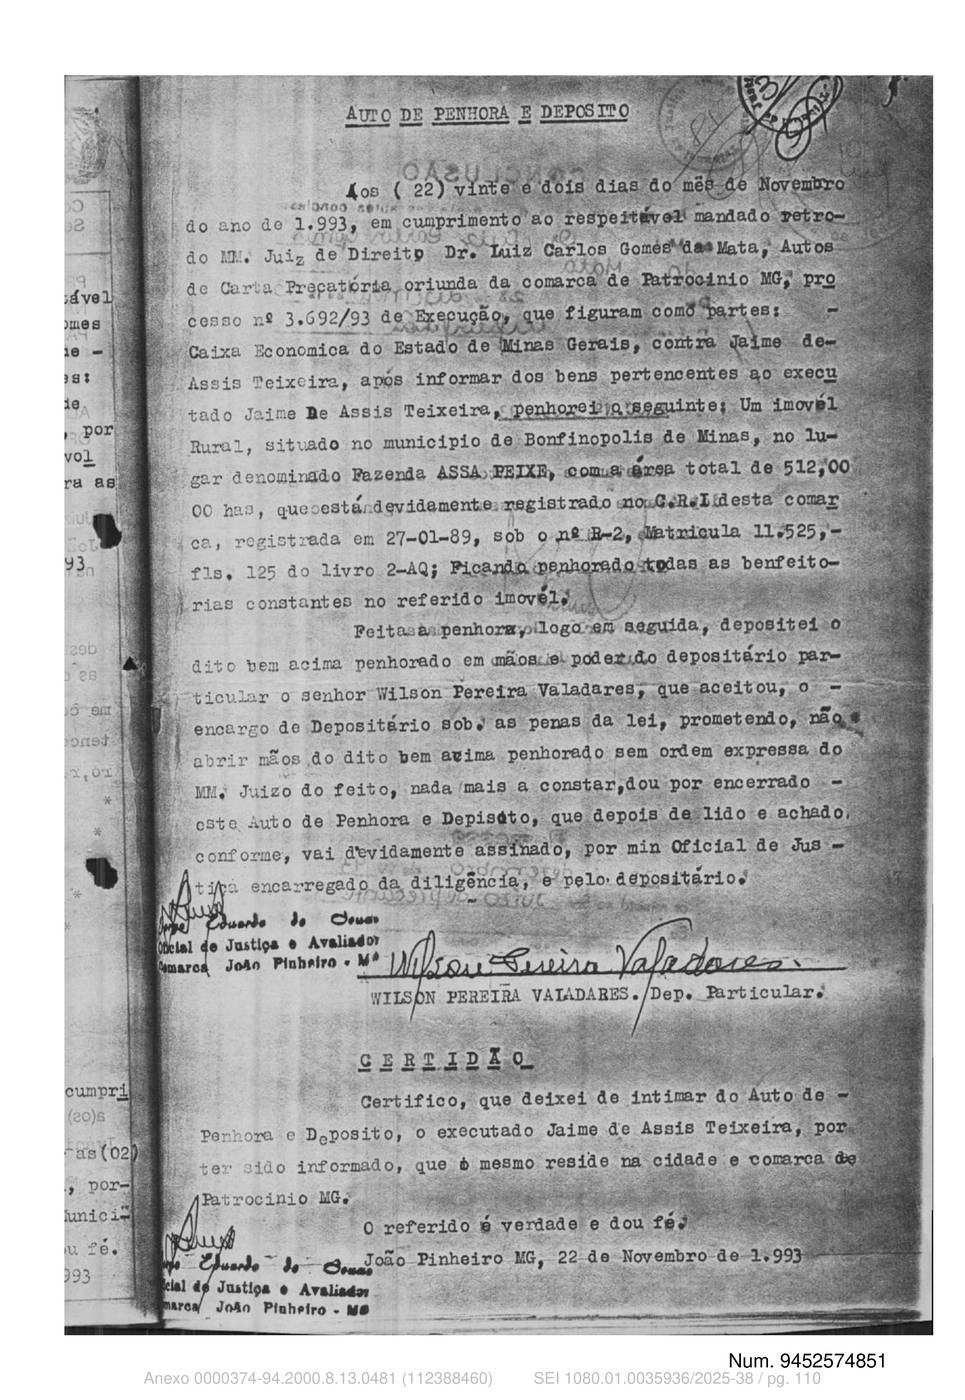 AUTO DE PENHORA E DEPOSITO
Aos ( 22) vinte e dois dias do mês de Novembro
do ano de 1.993, em cumprimento ao respeitável mandado retro-
do MM. Juiz de Direito Dr. Luiz Carlos Gomes da Mata, Autos
de Carta Precatória oriunda da comarca de Patrocinio MG, pro
cesso nº 3.692/93 de Execução, que figuram como partes: -
Caixa Economica do Estado de Minas Gerais, contra Jaime de-
Assis Teixeira, após informar dos bens pertencentes ao execu
tado Jaime De Assis Teixeira, penhorei o seguinte: Um imovél
Rural, situado no municipio de Bonfinopolis de Minas, no lu-
gar denominado Fazenda ASSA PEIXE, com a área total de 512,00
00 has, que está devidamente registrado no C.R.I desta comar
ca, registrada em 27-01-89, sob o nº R-2, Matricula 11.525,-
fls. 125 do livro 2-AQ; Ficando penhorado todas as benfeito-
rias constantes no referido imovél.
Feita a penhora, logo em seguida, depositei o
dito bem acima penhorado em mãos e poder do depositário par-
ticular o senhor Wilson Pereira Valadares, que aceitou, o -
encargo de Depositário sob. as penas da lei, prometendo, não
abrir mãos do dito bem acima penhorado sem ordem expressa do
MM. Juizo do feito, nada mais a constar,dou por encerrado -
este Auto de Penhora e Depisoto, que depois de lido e achado
conforme, vai devidamente assinado, por min Oficial de Jus -
tiça encarregado da diligência, e pelo depositário.
Eduardo de Souza
Oficial de Justiça e Avaliador
Comarca João Pinheiro - MG
Wilson Pereira Valadares.
WILSON PEREIRA VALADARES. Dep. Particular.
C E R T I D Ã O
Certifico, que deixei de intimar do Auto de -
Penhora e Deposito, o executado Jaime de Assis Teixeira, por
ter sido informado, que o mesmo reside na cidade e comarca de
Patrocinio MG.
O referido é verdade e dou fé.
João Pinheiro MG, 22 de Novembro de 1.993
Eduardo de Souza
Oficial de Justiça e Avaliador
Comarca João Pinheiro - MG
Num. 9452574851
Anexo 0000374-94.2000.8.13.0481 (112388460) SEI 1080.01.0035936/2025-38 / pg. 110